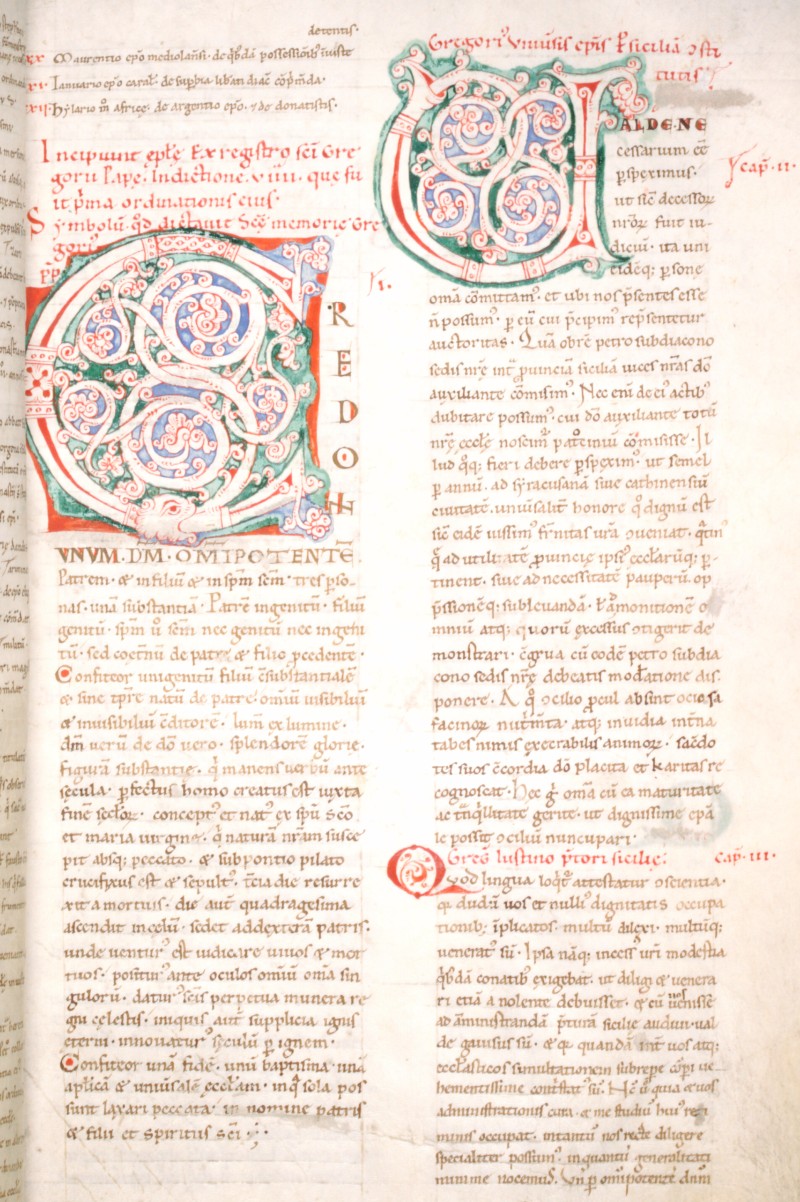 detentis·
Maurentio epō mediolañsi· de qͥbdā possessionib; iniuste
Ianuario epō carał· de supbia libati diac̄ cōp̄menda·
hylario iñ affrice· de argentio epō· ⁊ de donatistis·
Incipiunt eplę Ex registro sc̄i Gre
gorii Pape· Indictione· viiii· que fu
it p̄ma ordinationis eius·
Symbolū· qd dictauit sc̄ę memorie Gre
gorii
PP
I·
C
REDO IN
VNVM·DM̄·OMIPOTENTĒ·
Patrem· & in filiū & in sp̄m sc̄m· tres pso-
nas· unā substantiā· Patrē ingenitū· filiū
genitū· sp̄m ū sc̄m nec genitū nec ingeni
tū· sed coet̄nū de patre & filio p̄cedente·
Confiteor unigenitū filiū c̄substantialē
& sine tp̄re natū de patre· omiū uisibiliū
& inuisibiliū c̄ditore· lum̄ ex lumine·
dm̄ uerū de dō uero· splendorē glorię·
figurā substantię· qͥ manens uerbū ante
secula· pfectus homo creatus est iuxta
finē seclor̄· concept᾿ et nat᾿ ex sp̄u sc̄o
et maria uirgine· qͥ naturā nr̄am susce
pit absq; peccato· & sub pontio pilato
crucifixus est & sepult᾿· t̄cia die resurre
xit a mortuis· die aut̄ quadragesima
ascendit in celū· sedet ad dexterā patris·
unde uentur᾿ est iudicare uiuos & mor
tuos· positur᾿ ante oculos omiū om̄a sin
gulorū· datur᾿ sc̄is perpetua munera re
gni celestis· iniquis aut̄ supplicia ignis
et̄erni· innouatur᾿ sęculū p ignem·
Confiteor unā fidē· unū baptisma· unā
aplicā & uniūsalē eccłam· in qͣ sola pos
sunt laxari peccata· in nomine patris
& filii et spiritus sc̄i·
Gregori᾿ Vniuersis epīs P sicilia 9sti
tutis·
VALDE NE
cessarium eē
pspeximus·
ut sic̄ decessor
nr̄or̄ fuit iu-
diciū· ita uni
eidēq; psonę
cap̄· ii·
om̄a cōmittam᾿· et ubi nos p̄sentes esse
ñ possum᾿· p eū cui p̄cipim᾿ rep̄sentetur
auctoritas· Quā obrē petro subdiacono
sedis nr̄ę int̄ puinciā sicilia uices nr̄as dō
auxiliante cōmisim᾿· Nec eni de ei᾿ actib᾿
dubitare possum᾿· cui dō auxiliante totū
nr̄ę eccłę noscim᾿ pat̄imiū cōmisisse· Il
lud qͦq; fieri debere pspexim᾿· ut semel
p annū· ad syracusanā siue catinensiū
ciuitatē· uniūsalit̄ honore qͦ dignū est
sic̄ eidē iussim᾿ fr̄nitas ur̄a 9ueniat· qͣtin᾿
qͣ ad utilitatē puincię ipsi᾿ eccłarūq; p-
tinent· siue ad necessitatē pauperū· op
p̄ssionēq; subleuandā· l amonitionē o
mniū atq; quorū excessus 9tigerit de
monstrari· c̄grua cū eodē petro subdia
cono sedis nr̄ę debeatis mod̄atione dis
ponere· A qͦ 9cilio pcul absint ociosa
facinor̄ nut̄m̄ta· atq; inuidia int̄na
tabes nimis execrabilis animor̄· sac̄do
tes suos c̄cordia dō placita et karitas re
cognoscat· Hęc g̊ om̄a cū ea maturitate
ac t̄nqͥllitate gerite· ut dignissime epā
le possit 9ciliū nuncupari·
Greḡ Iustino p̄tori sicilię·
cap̄· iii·
Qvod lingua loqͥt᾿ attestatur 9scientia·
q̄ dudū uos et nulli᾿ dignitatis occupa
tionib; īplicatos· multū dilexi· multūq;
uenerat᾿ sū· Ipsa nāq; incess᾿ ur̄i modestia
qͥbdā conatib᾿ exigebat· ut diligi & uenera
ri etiā a nolente debuisset· & cū uos uenisse
ad aminist̄andā p̄turā sicilię audiui· ual
de gauisus sū· & q̄ quandā int̄ uos atq;
ecclasticos simultationem subrepe cōpi· ue
hementissime cont̄stat᾿ sū· Nc̄ ū quia & uos
administrationis cura· & me studiū hui᾿ regi
minis occupat· in tantū nos recte diligere
specialiter possum᾿· in quantū generalitati
minime nocem᾿· Vn̄ p om̄ipotentē dnm̄